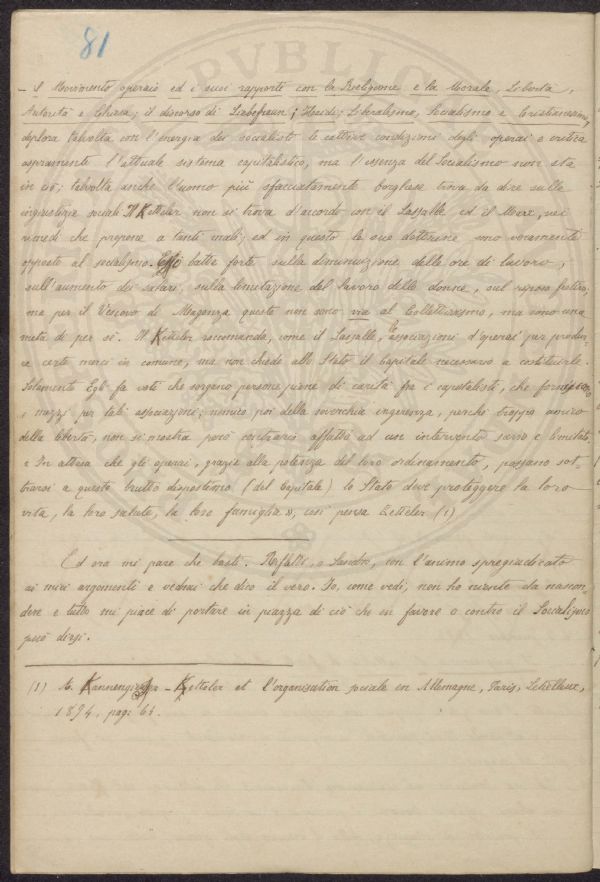 81
- il Movimento operaio ed i suoi rapporti con la Religione e la Morale, Libertà,
Autorità e Chiesa; il discorso di ; Liberalismo, Socialismo e Cristianesimo,
deplora talvolta con l'energia dei socialisti le cattive condizioni degli operai e critica
aspramente l'attuale sistema capitalistico, ma l'essenza del Socialismo non sta
in ciò; talvolta anche l'uomo più sfacciatamente borghese trova da dire sulle
ingiustizie sociali. Il Ketteler non si trova d'accordo con il Lassalle ed il Marx, nei
rimedi che propone a tanti mali; ed in questo le sue dottrine sono veramente
opposte al socialismo. Esso batte forte sulla diminuzione delle ore di lavoro,
sull'aumento dei salari, sulla limitazione del lavoro delle donne, sul riposo festivo,
ma per il Vescovo di Magonza queste non sono via al Collettivismo, ma sono una
meta di per sè. Il Ketteler raccomanda, come il Lassalle, le associazioni d'operai per produr-
re certe merci in comune, ma non chiede allo Stato il capitale necessario a costituirle.
Solamente Egli fa voti che sorgano persone piene di carità fra i capitalisti, che forniscano
i mezzi per tali associazioni; nemico poi della soverchia ingerenza, perchè troppo amico
della libertà, non si mostra però contrario affatto ad un intervento savio e limitato.
« In attesa che gli operai, grazie alla potenza del loro ordinamento, possano sot-
trarsi a questo brutto dispotismo (del Capitale) lo Stato deve proteggere la loro
vita, la loro salute, la loro famiglia », così pensa Ketteler (1)
Ed ora mi pare che basti. Rifletti, o Sandro, con l'animo spregiudicato
ai miei argomenti e vedrai che dico il vero. Io, come vedi, non ho niente da nascon-
dere e tutto mi piace di portare in piazza di ciò che in favore o contro il Socialismo
può dirsi.
(1) A. Kannengieser - Ketteler et l'organisation sociale en Allemagne, Paris, Lethielleux,
1894, pag: 64.
PVBLIC